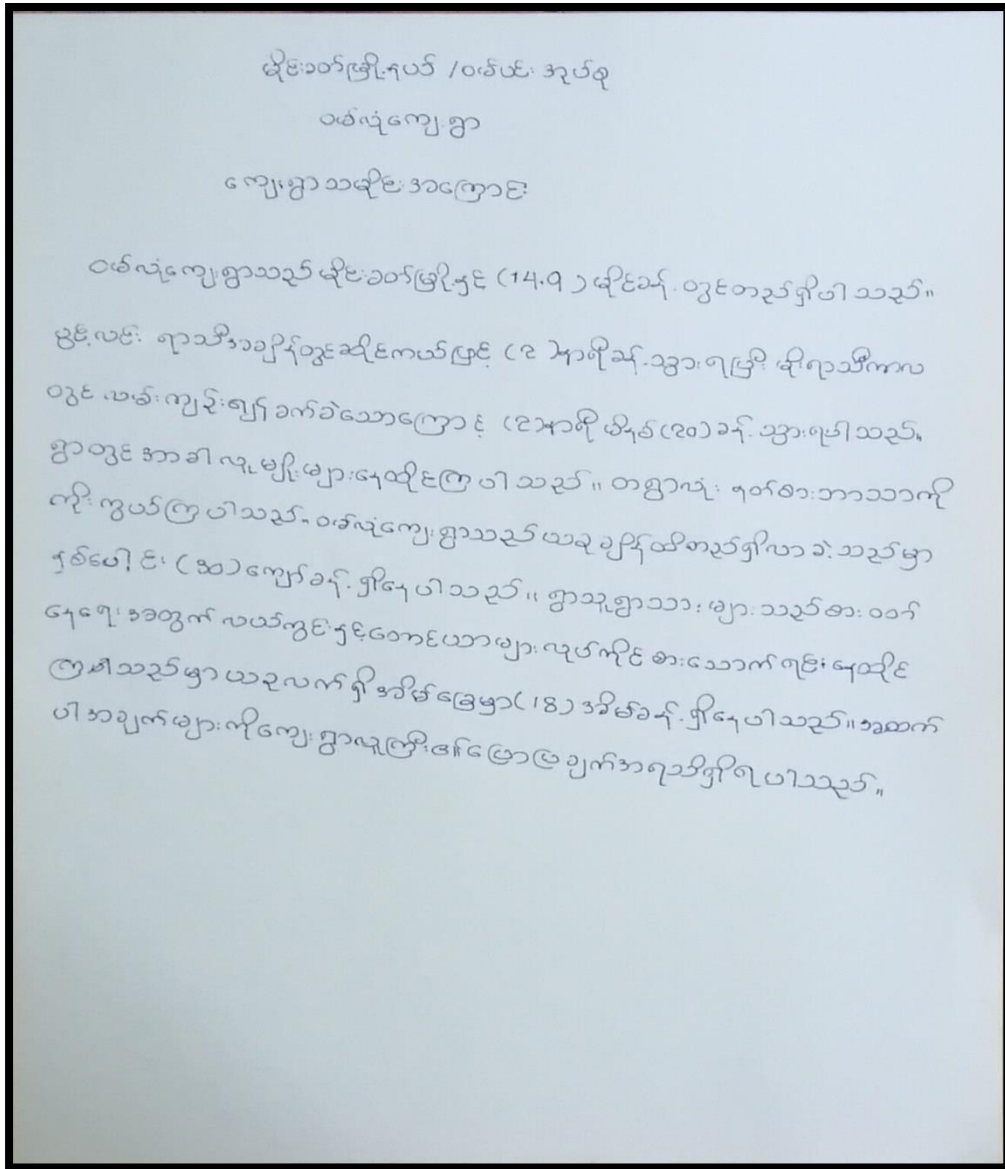 မိုင်းခတ်မြို့နယ် /ဝမ်ပင်းအုပ်စု
ဝမ်လုံကျေးရွာ
ကျေးရွာသမိုင်းအကြောင်း
ဝမ်လုံကျေးရွာသည် မိုင်းခတ်မြို့နှင့် (14.9) မိုင်ခန့်တွင်တည်ရှိပါသည်။
ပွင့်လင်းရာသီအချိန်တွင်ဆိုင်ကယ်ဖြင့် (၁)နာရီခန့်သွားရပြီး မိုးရာသီကာလ
တွင် လမ်းကျဉ်း၍ ခက်ခဲသောကြောင့် (၁)နာရီ မိနစ်(၃၀)ခန့်သွားရပါသည်။
ရွာတွင်အာခါလူမျိုးများနေထိုင်ကြပါသည်။ တရွာလုံး နတ်စားဘာသာကို
ကိုးကွယ်ကြပါသည်။ ဝမ်လုံကျေးရွာသည်ယခုချိန်ထိတည်ရှိလာခဲ့သည်မှာ
နှစ်ပေါင်း (၁၀၀)ကျော်ခန့်ရှိနေပါသည်။ ရွာသူရွာသားများသည်စားဝတ်
နေရေးအတွက် လယ်ကွင်းနှင့်တောင်ယာများလုပ်ကိုင်စားသောက်ရင်းနေထိုင်
ကြပါသည်မှာယခုလက်ရှိအိမ်ခြေမှာ(18) အိမ်ခန့်ရှိနေပါသည်။ အထက်
ပါအချက်များကိုကျေးရွာလူကြီး၏ပြောပြချက်အရသိရှိရပါသည်။